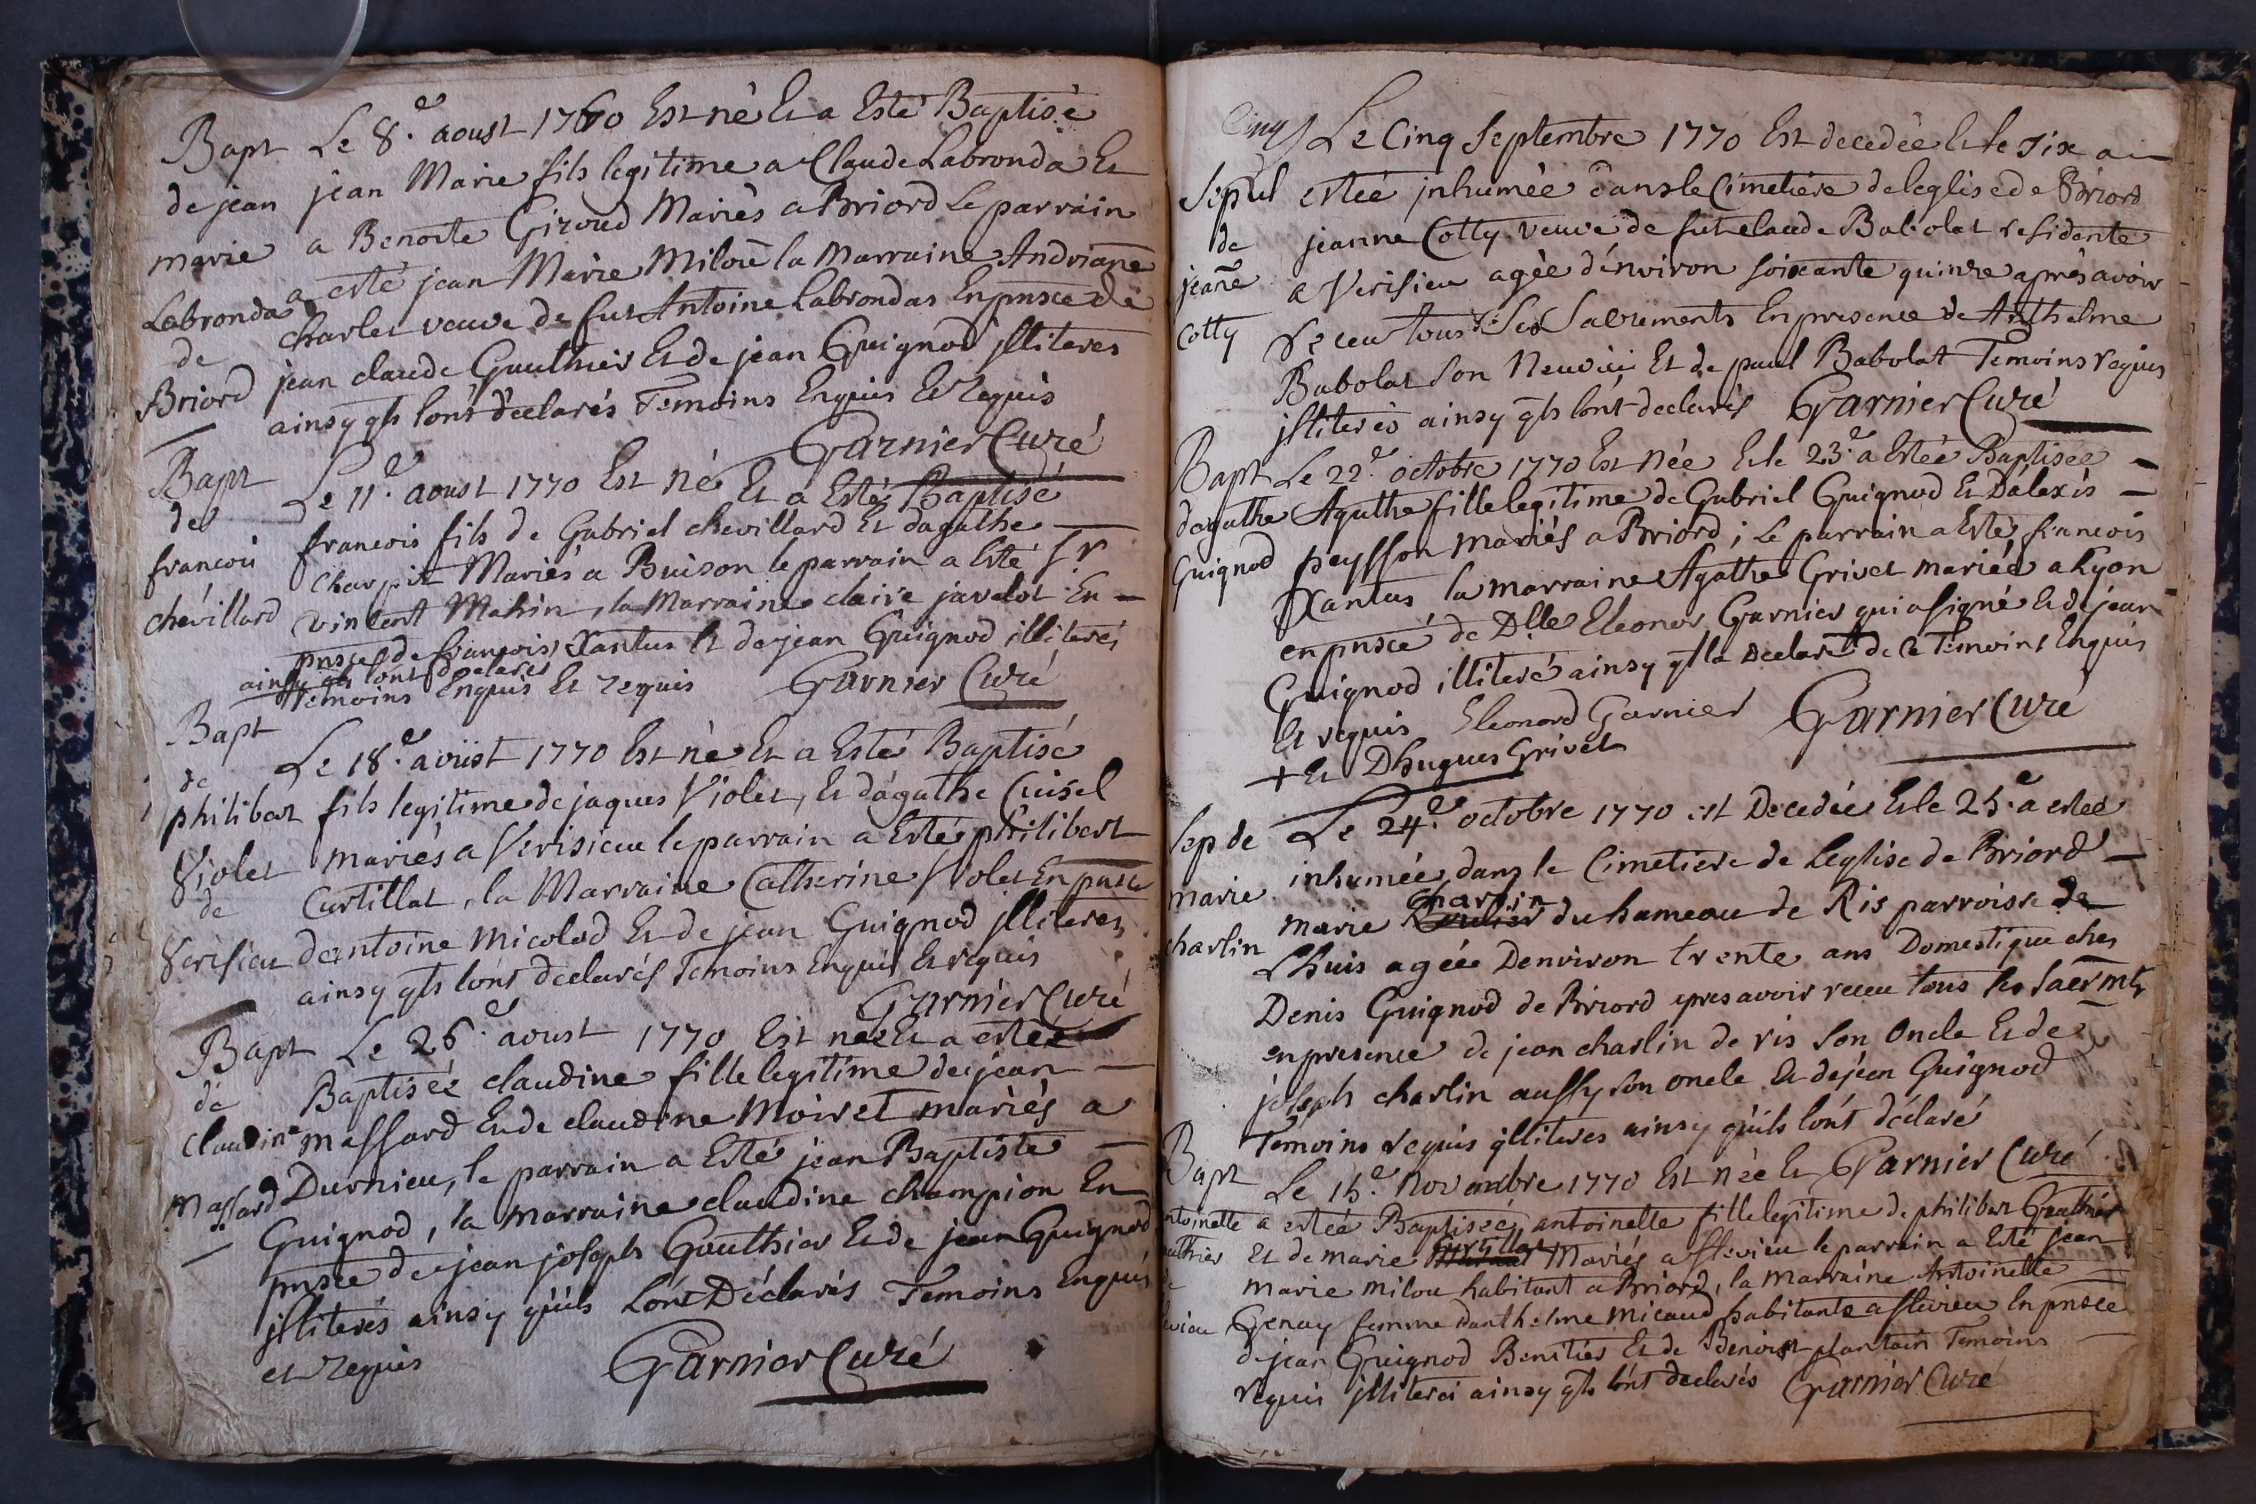 Bapt
de jean
marie
Labronda
de
Briord
Le 8.e aoust 1760 Est né Et a Esté Baptisé
jean Marie fils legitime a Claude Labronda Et
a Benoite Giroud Mariés a Briord Le parrain
a esté jean Marie Milou la Marraine Andriane
Charlet veuve de fut Antoine Labrondas En pnsce de
jean claude Gauthier Et de jean Guignod jlliteres
ainsy qls lont declarés Temoins Enquis Et Requis
Garnier Curé
Bapt
de
francois
chevillard
Le 11.e aoust 1770 Est né Et a Esté Baptisé
francois fils de Gabriel chevillard Et dagathe
Charpit Mariés a Buison le parrain a Esté Sr
vincent Mahin, la Marraine claire javelot En
pnsce de francois Xantus Et de jean Guignod illiterés
ainsy qls lont declares
Temoins Enquis Et requis Garnier Curé
Bapt
de
philibert
Violet
de
Verisieu
Le 18.e aoust 1770 Est né Et a Esté Baptisé
fils legitime de jaques Violet, Et dágathe Cuisel
mariés a Verisieu le parrain a Esté philibert
Curtillat, la Marraine Catherine Violet En pnsce
dantoine Micolod Et de jean Guignod jlliteres
ainsy qls lont declarés Temoins Enquis Et requis
Garnier Curé
Bapt
de
Claudine
Massard
Le 26.e aoust 1770 Est née Et a estée
Baptisée claudine fille legitime de jean
Massard Et de claudine Moiret mariés a
Durnieu, le parrain a Esté jean Baptiste
Guignod, la marraine claudine champion En
pnsce de jean joseph Gauthier Et de jean Guignod
jlliterés ainsy quils Lont Déclarés Temoins Enquis
et requis Garnier Curé
Cinq
Sepul
de
jeañe
Cotty
Le Cinq Septembre 1770 Est decedée Et le six a
estée jnhumée dans le Cimetiére de leglise de Briord
jeanne Cotty veuve de fut claude Babolat residente
a Verisieu agée dénviron soixante quinze aprés avoir
Receu tous Ses Sacrements En presence de Anthelme
Babolat son Neuveu Et de paul Babolat Temoins requis
jlliterés ainsy qls lont declarés Garnier Curé
Bapt
dagathe
Guignod
Le 22.e octobre 1770 Est Née Et le 23.e a Estée Baptisée
Agathe fille legitime de Gabriel Guignod Et Dalexis
peysson mariés a Briord; Le parrain a Esté francois
Xantus la marraine Agathe Grivet mariée a Lyon
en pnsce de Dlle Eleonor Garnier qui a signé Et de jean
Guignod illiteré ainsy ql la Declaré de ce Temoins Enquis
Et requis Eleonord Garnier Garnier Curé
+ Et Dhugues Grivet
Sep de
marie
charlin
Le 24.e octobre 1770 est Decedée Et le 25.e a estée
inhumée dans le Cimetiere de Leglise de Briord
marie charlin du hameau de Ris parroisse de
Lhuis agée Denviron trente ans Domestique ches
Denis Guignod de Briord apres avoir receu tous les sacrmts
en presence de jean charlin de ris son Oncle Et de
joseph charlin aussy son oncle Et de jean Guignod
Temoins requis jlliteres ainsy quils lont declaré
Garnier Curé
Bapt
antoinette
Le 15.e Novembre 1770 Est née Et
a estée Baptisée antoinette fille legitime de philibert Gauthier
Et de marie Curtillat Mariés a flevieu le parrain a Esté jean
marie milou habitant a Briord, la Marraine Antoinette
Genay femme danthelme Micaud habitants a flevieu En pnsce
de jean Guignod Benitier Et de Benoist plantain Temoins
requis jlliteres ainsy qls lont declarés Garnier Curé